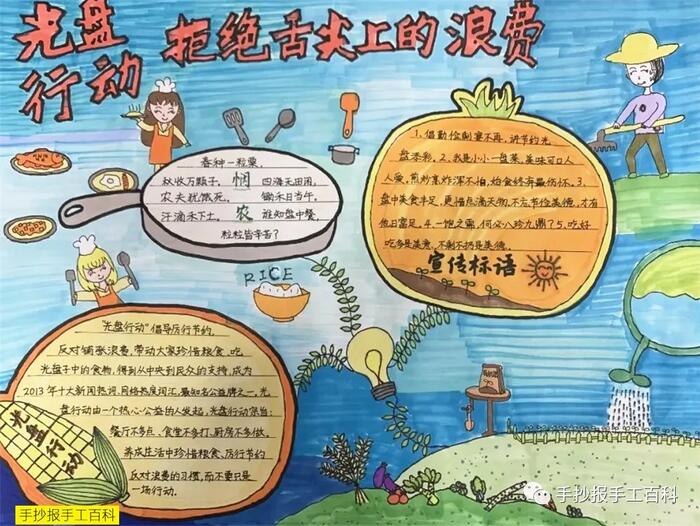 光盘
行动
拒绝舌尖上的浪费
春种一粒粟,
秋收万颗子。
四海无田闲,
农夫犹饿死。
悯
农
锄禾日当午,
汗滴禾下土。
谁知盘中餐,
粒粒皆辛苦?
RICE
1.倡勤俭
节约光
盘本彩。2.我是小小一盘菜,美味可口人
人爱,煎炒烹炸浑不怕,怕食终弃最伤怀。3.
盘中美食十足,更惜
天物,不忘节俭美德,才有
他日富足。4.一饱之需,何必八珍九鼎?5.吃好
吃多是美意,不剩不扔是美德。
宣传标语
"光盘行动"倡导厉行节约,
反对铺张浪费,带动大家珍惜粮食、吃
光盘子中的食物,得到从中央到民众的支持,成为
2013年十大新闻热词、网络热度词汇,最知名公益牌之一。光
盘行动由一个热心公益的人发起,光盘行动宗旨:
餐厅不多点、食堂不多打、厨房不多做。
养成生活中珍惜粮食、厉行节约
反对浪费的习惯,而不要只是
一场行动。
光盘行动
手抄报手工百科
手抄报手工百科